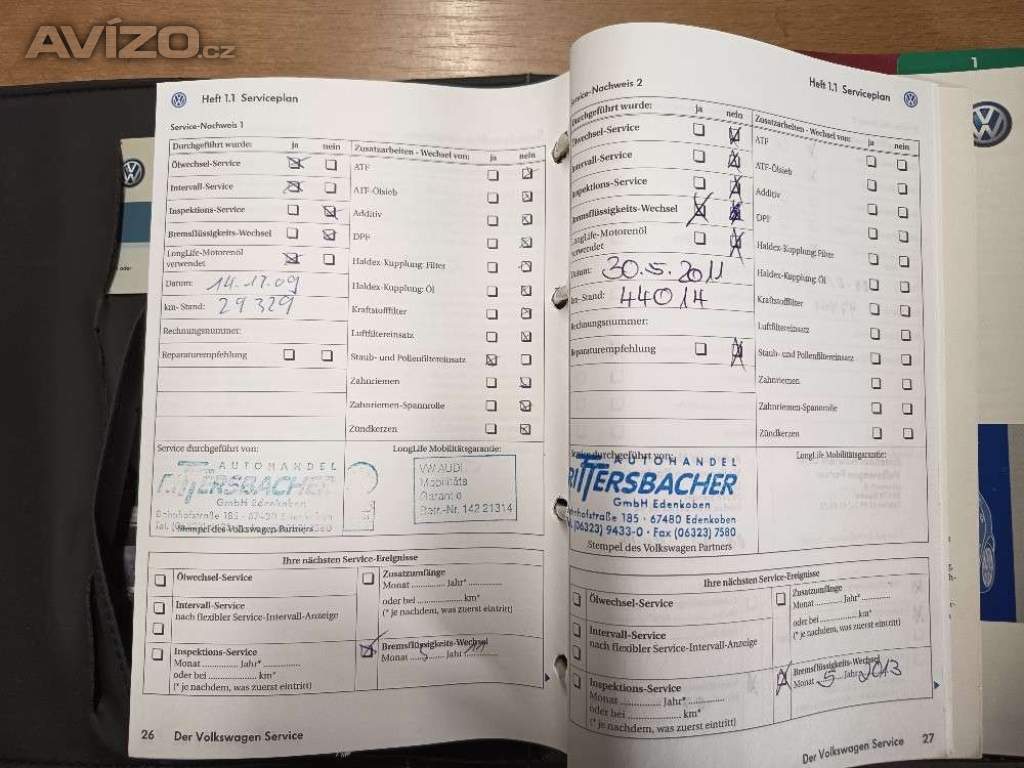 AVÍZO.cz
Heft 1.1 Serviceplan
Service-Nachweis 1
Durchgeführt wurde: ja nein
Zusatzarbeiten - Wechsel von: ja nein
Ölwechsel-Service
ATF
Intervall-Service
ATF-Ölsieb
Inspektions-Service
Additiv
Bremsflüssigkeits-Wechsel
DPF
LongLife-Motorenöl
verwendet
Haldex-Kupplung: Filter
Datum: 14.12.09
Haldex-Kupplung: Öl
km- Stand: 29329
Kraftstofffilter
Rechnungsnummer:
Luftfiltereinsatz
Reparaturempfehlung
Staub- und Pollenfiltereinsatz
Zahnriemen
Zahnriemen-Spannrolle
Zündkerzen
Service durchgeführt von:
LongLife Mobilitätsgarantie:
AUTOHANDEL
RITTERSBACHER
GmbH Edenkoben
Bahnhofstraße 185 · 67480 Edenkoben
Stempel des Volkswagen Partners
VW AUDI
Mobilitäts
Garantie
Betr.-Nr. 142 21314
Ihre nächsten Service-Ereignisse
Ölwechsel-Service
Zusatzumfänge
Monat Jahr*
oder bei km*
(* je nachdem, was zuerst eintritt)
Intervall-Service
nach flexibler Service-Intervall-Anzeige
Inspektions-Service
Monat Jahr*
oder bei km*
(* je nachdem, was zuerst eintritt)
Bremsflüssigkeits-Wechsel
Monat 5 Jahr 11
26 Der Volkswagen Service
Heft 1.1 Serviceplan
Service-Nachweis 2
Durchgeführt wurde: ja nein
Zusatzarbeiten - Wechsel von: ja nein
Ölwechsel-Service
ATF
Intervall-Service
ATF-Ölsieb
Inspektions-Service
Additiv
Bremsflüssigkeits-Wechsel
DPF
LongLife-Motorenöl
verwendet
Haldex-Kupplung: Filter
Datum: 30.5.2011
Haldex-Kupplung: Öl
km-Stand: 44014
Kraftstofffilter
Rechnungsnummer:
Luftfiltereinsatz
Reparaturempfehlung
Staub- und Pollenfiltereinsatz
Zahnriemen
Zahnriemen-Spannrolle
Zündkerzen
Service durchgeführt von:
LongLife Mobilitätsgarantie:
AUTOHANDEL
RITTERSBACHER
GmbH Edenkoben
Bahnhofstraße 185 · 67480 Edenkoben
Tel. (06323) 9433-0 · Fax (06323) 7580
Stempel des Volkswagen Partners
Ihre nächsten Service-Ereignisse
Ölwechsel-Service
Zusatzumfänge
Monat Jahr*
oder bei km*
(* je nachdem, was zuerst eintritt)
Intervall-Service
nach flexibler Service-Intervall-Anzeige
Inspektions-Service
Monat Jahr*
oder bei km*
(* je nachdem, was zuerst eintritt)
Bremsflüssigkeits-Wechsel
Monat 5 Jahr 2013
Der Volkswagen Service 27
1